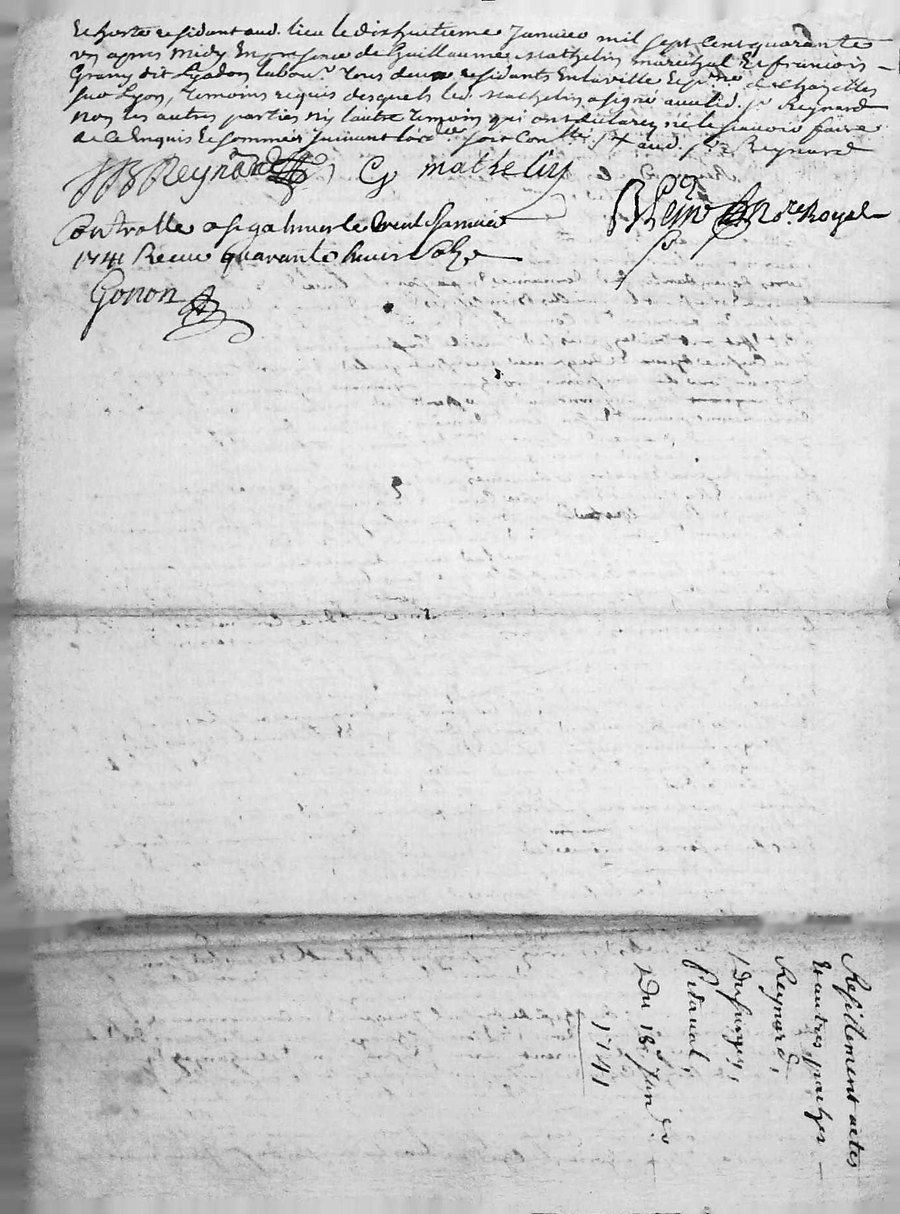 et hoste residant aud. lieu le dixhuitieme Janvier mil sept cent quarante
un apres midy En presence de Guillaume Mathelin marechal Et francois
Grany dit labour tous deux residants En la ville de chazelles
sur Lyon, temoins requis desquels led. Mathelin a signé avec led. Sr Reynard
non les autres parties ny l'autre temoin qui ont declarez ne le sçavoir faire
de ce Enquis Et sommés suivant aud. Sr Reynard
Reynard G mathelin
Not. Royal
Controlle a st galmier le vint Janvier
1741 Receu quarante huit solz
Gonon
Resillement actes
Et autres, parties
Reynard,
Pitaval,
Du 18e Janv.
1741